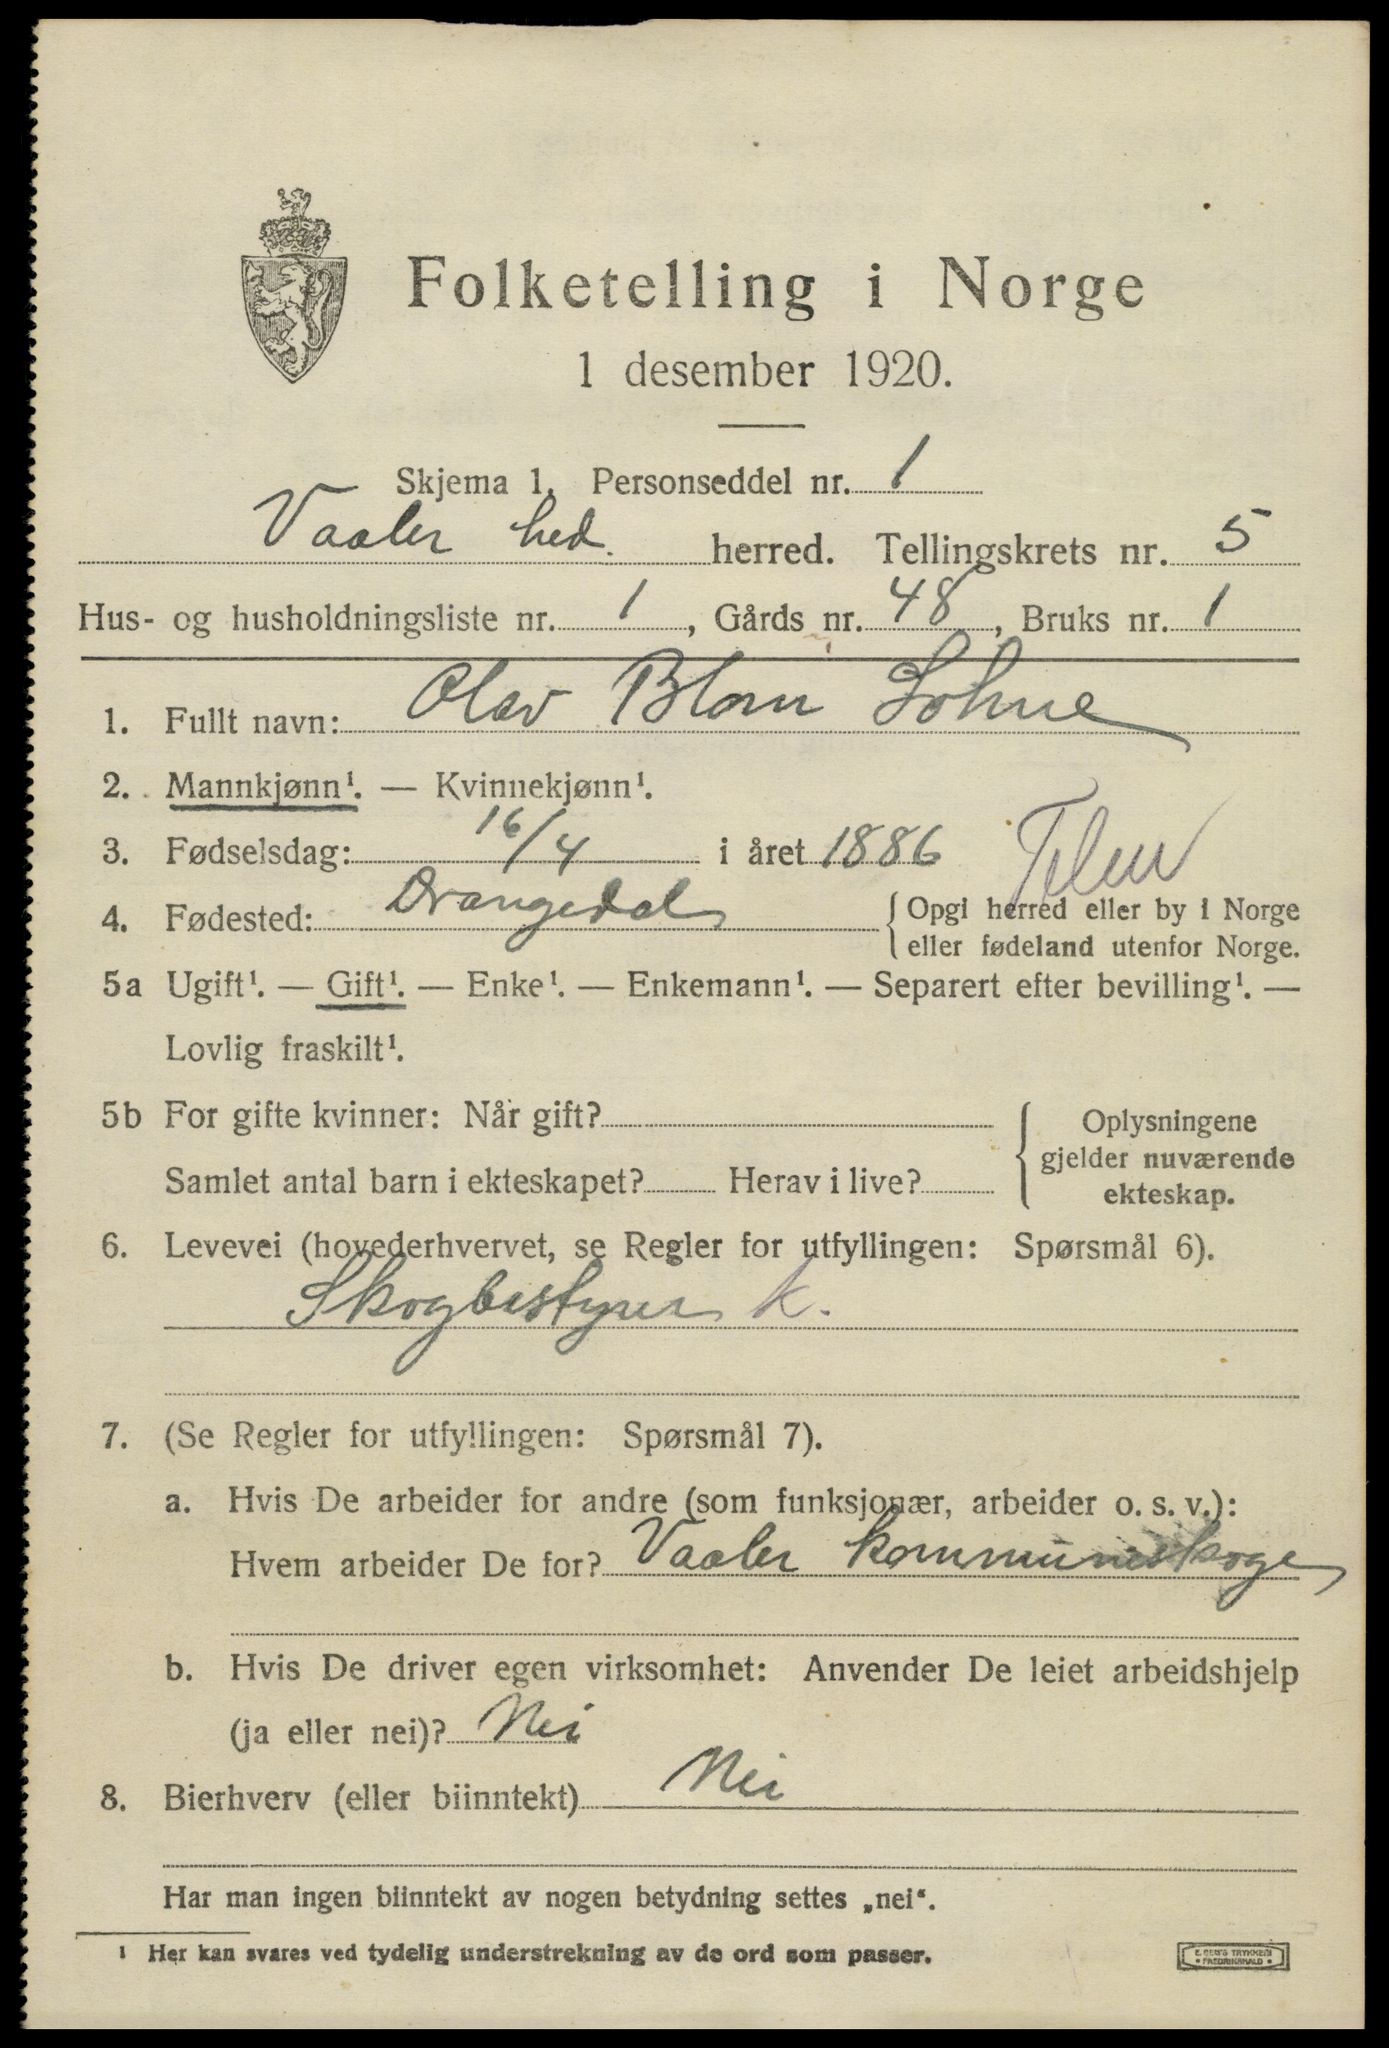 Folketelling i Norge
1 desember 1920.
Skjema 1. Personseddel nr. 1
Vaaler hed. herred. Tellingskrets nr. 5
Hus- og husholdningsliste nr. 1, Gårds nr. 48, Bruks nr. 1
1. Fullt navn: Olav Blom Lohne
2. Mannkjønn¹. — Kvinnekjønn¹.
3. Fødselsdag: 16/4 i året 1886
Telem
4. Fødested: Drangedal { Opgi herred eller by i Norge
eller fødeland utenfor Norge.
5a Ugift¹. — Gift¹. — Enke¹. — Enkemann¹. — Separert efter bevilling¹. —
Lovlig fraskilt¹.
5b For gifte kvinner: Når gift?
Samlet antal barn i ekteskapet? Herav i live?
{ Oplysningene
gjelder nuværende
ekteskap.
6. Levevei (hovederhvervet, se Regler for utfyllingen: Spørsmål 6).
Skogbestyrer k.
7. (Se Regler for utfyllingen: Spørsmål 7).
a. Hvis De arbeider for andre (som funksjonær, arbeider o. s. v.):
Hvem arbeider De for? Vaaler kommuneskoge
b. Hvis De driver egen virksomhet: Anvender De leiet arbeidshjelp
(ja eller nei)? Nei
8. Bierhverv (eller biinntekt) Nei
Har man ingen biinntekt av nogen betydning settes „nei“.
¹ Her kan svares ved tydelig understrekning av de ord som passer.
E. SEM'S TRYKKERI
• FREDRIKSHALD •